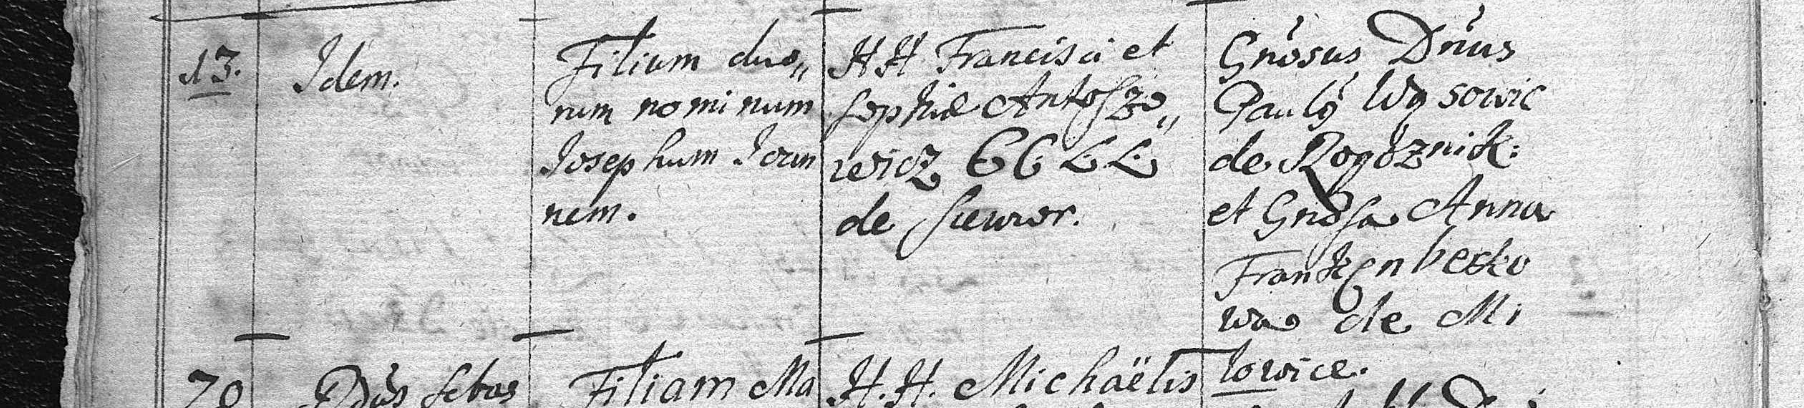 13.
Idem.
Filium duo„
rum nominum
Josephum Joan
nem.
HH Francisci et
Sophiæ Antosze„
wicz CC LL
de Siewior.
Gnosus Dnus
Paulq Wysowic
de Rogoznik:
et Gnosa Anna
Frankenberko
wa de Mi
lowice.
70
Pdus Sebas
Filiam Ma
H. H. Michaëlis